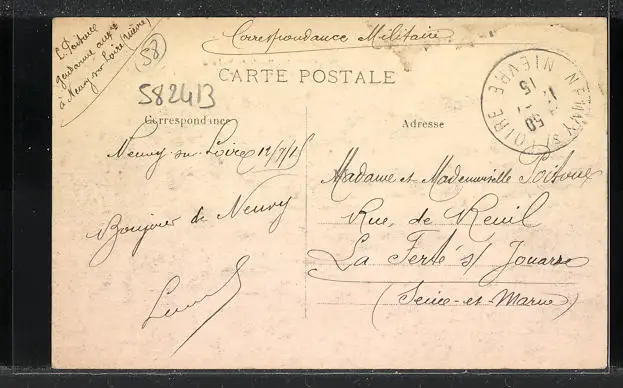 L. Poitoux
gendarme aux.
à Neuvy-sur-Loire (Nièvre)
58
Correspondance Militaire
NEUVY S LOIRE
NIEVRE
15
CARTE POSTALE
582413
Correspondance
Adresse
Neuvy-sur-Loire 12/7/15
Bonjour de Neuvy
Madame et Mademoiselle
Rue de Reuil
La Ferté s/ Jouarre
(Seine-et-Marne)